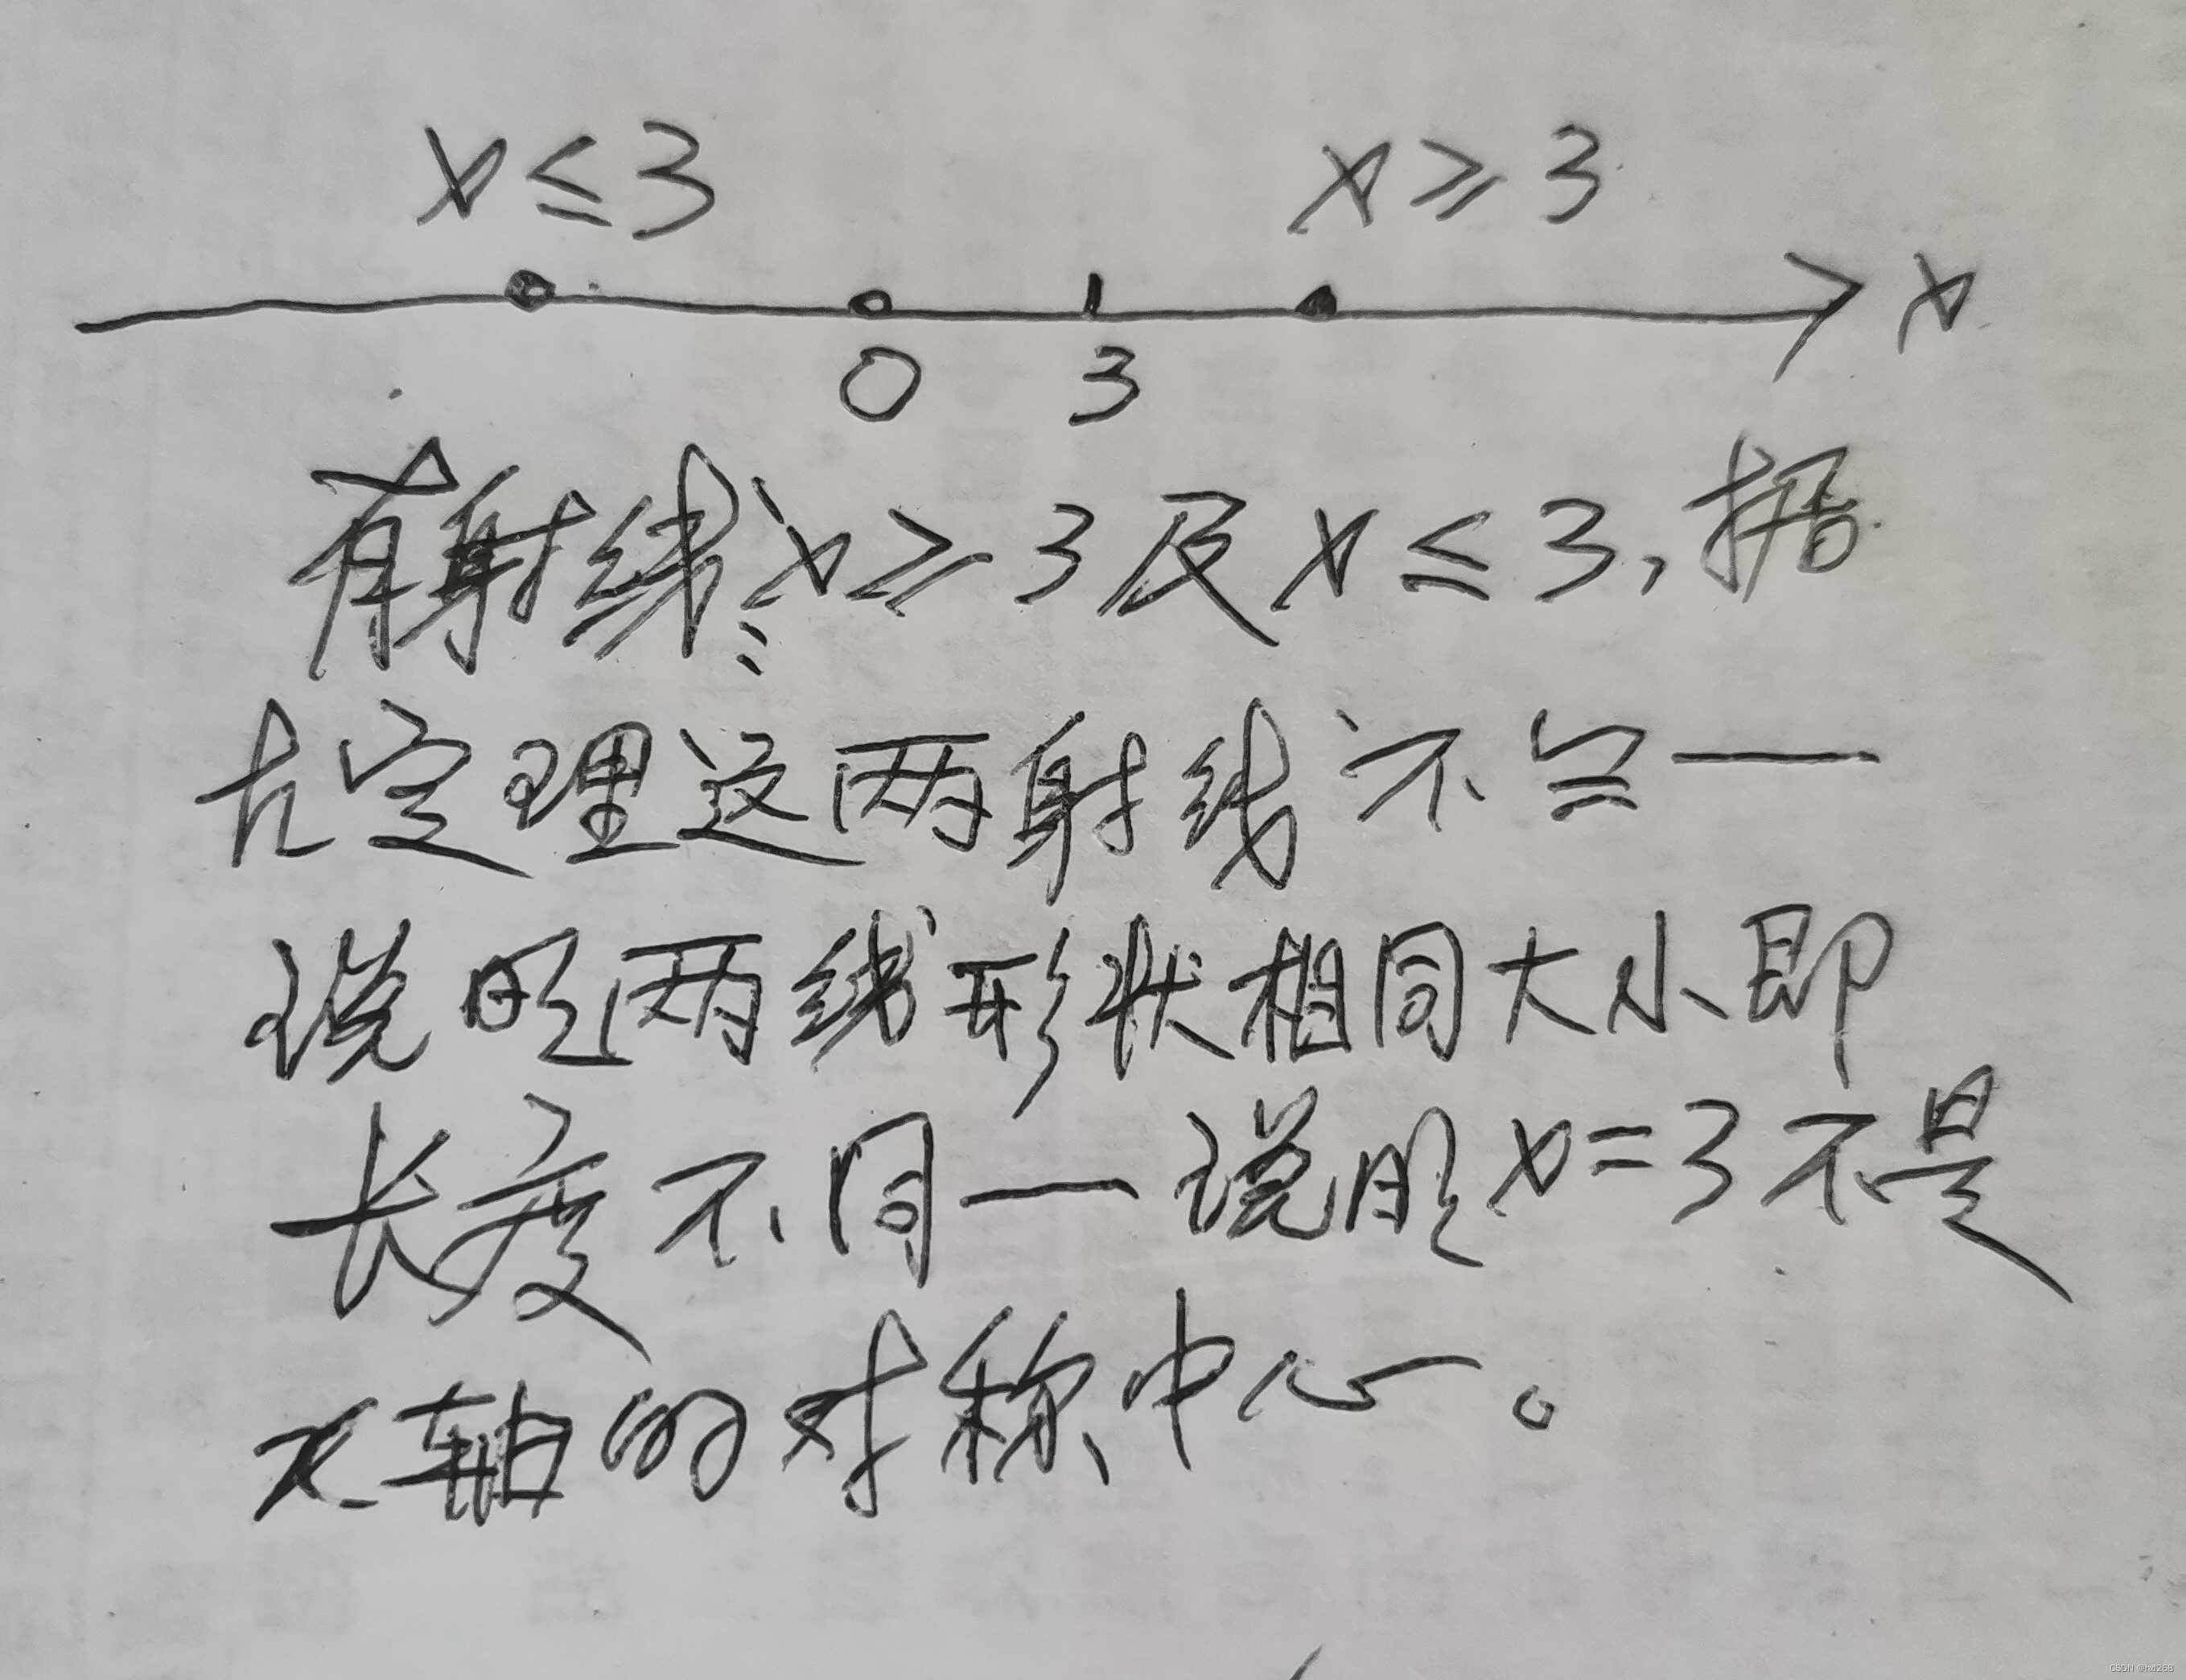 x≤3 x≥3
x
0 3
有射线:x≥3及x≤3,据
h定理这两射线不≌一
说明两线形状相同大小即
长度不同一说明x=3不是
x轴的对称中心。
CSDN @hxl268